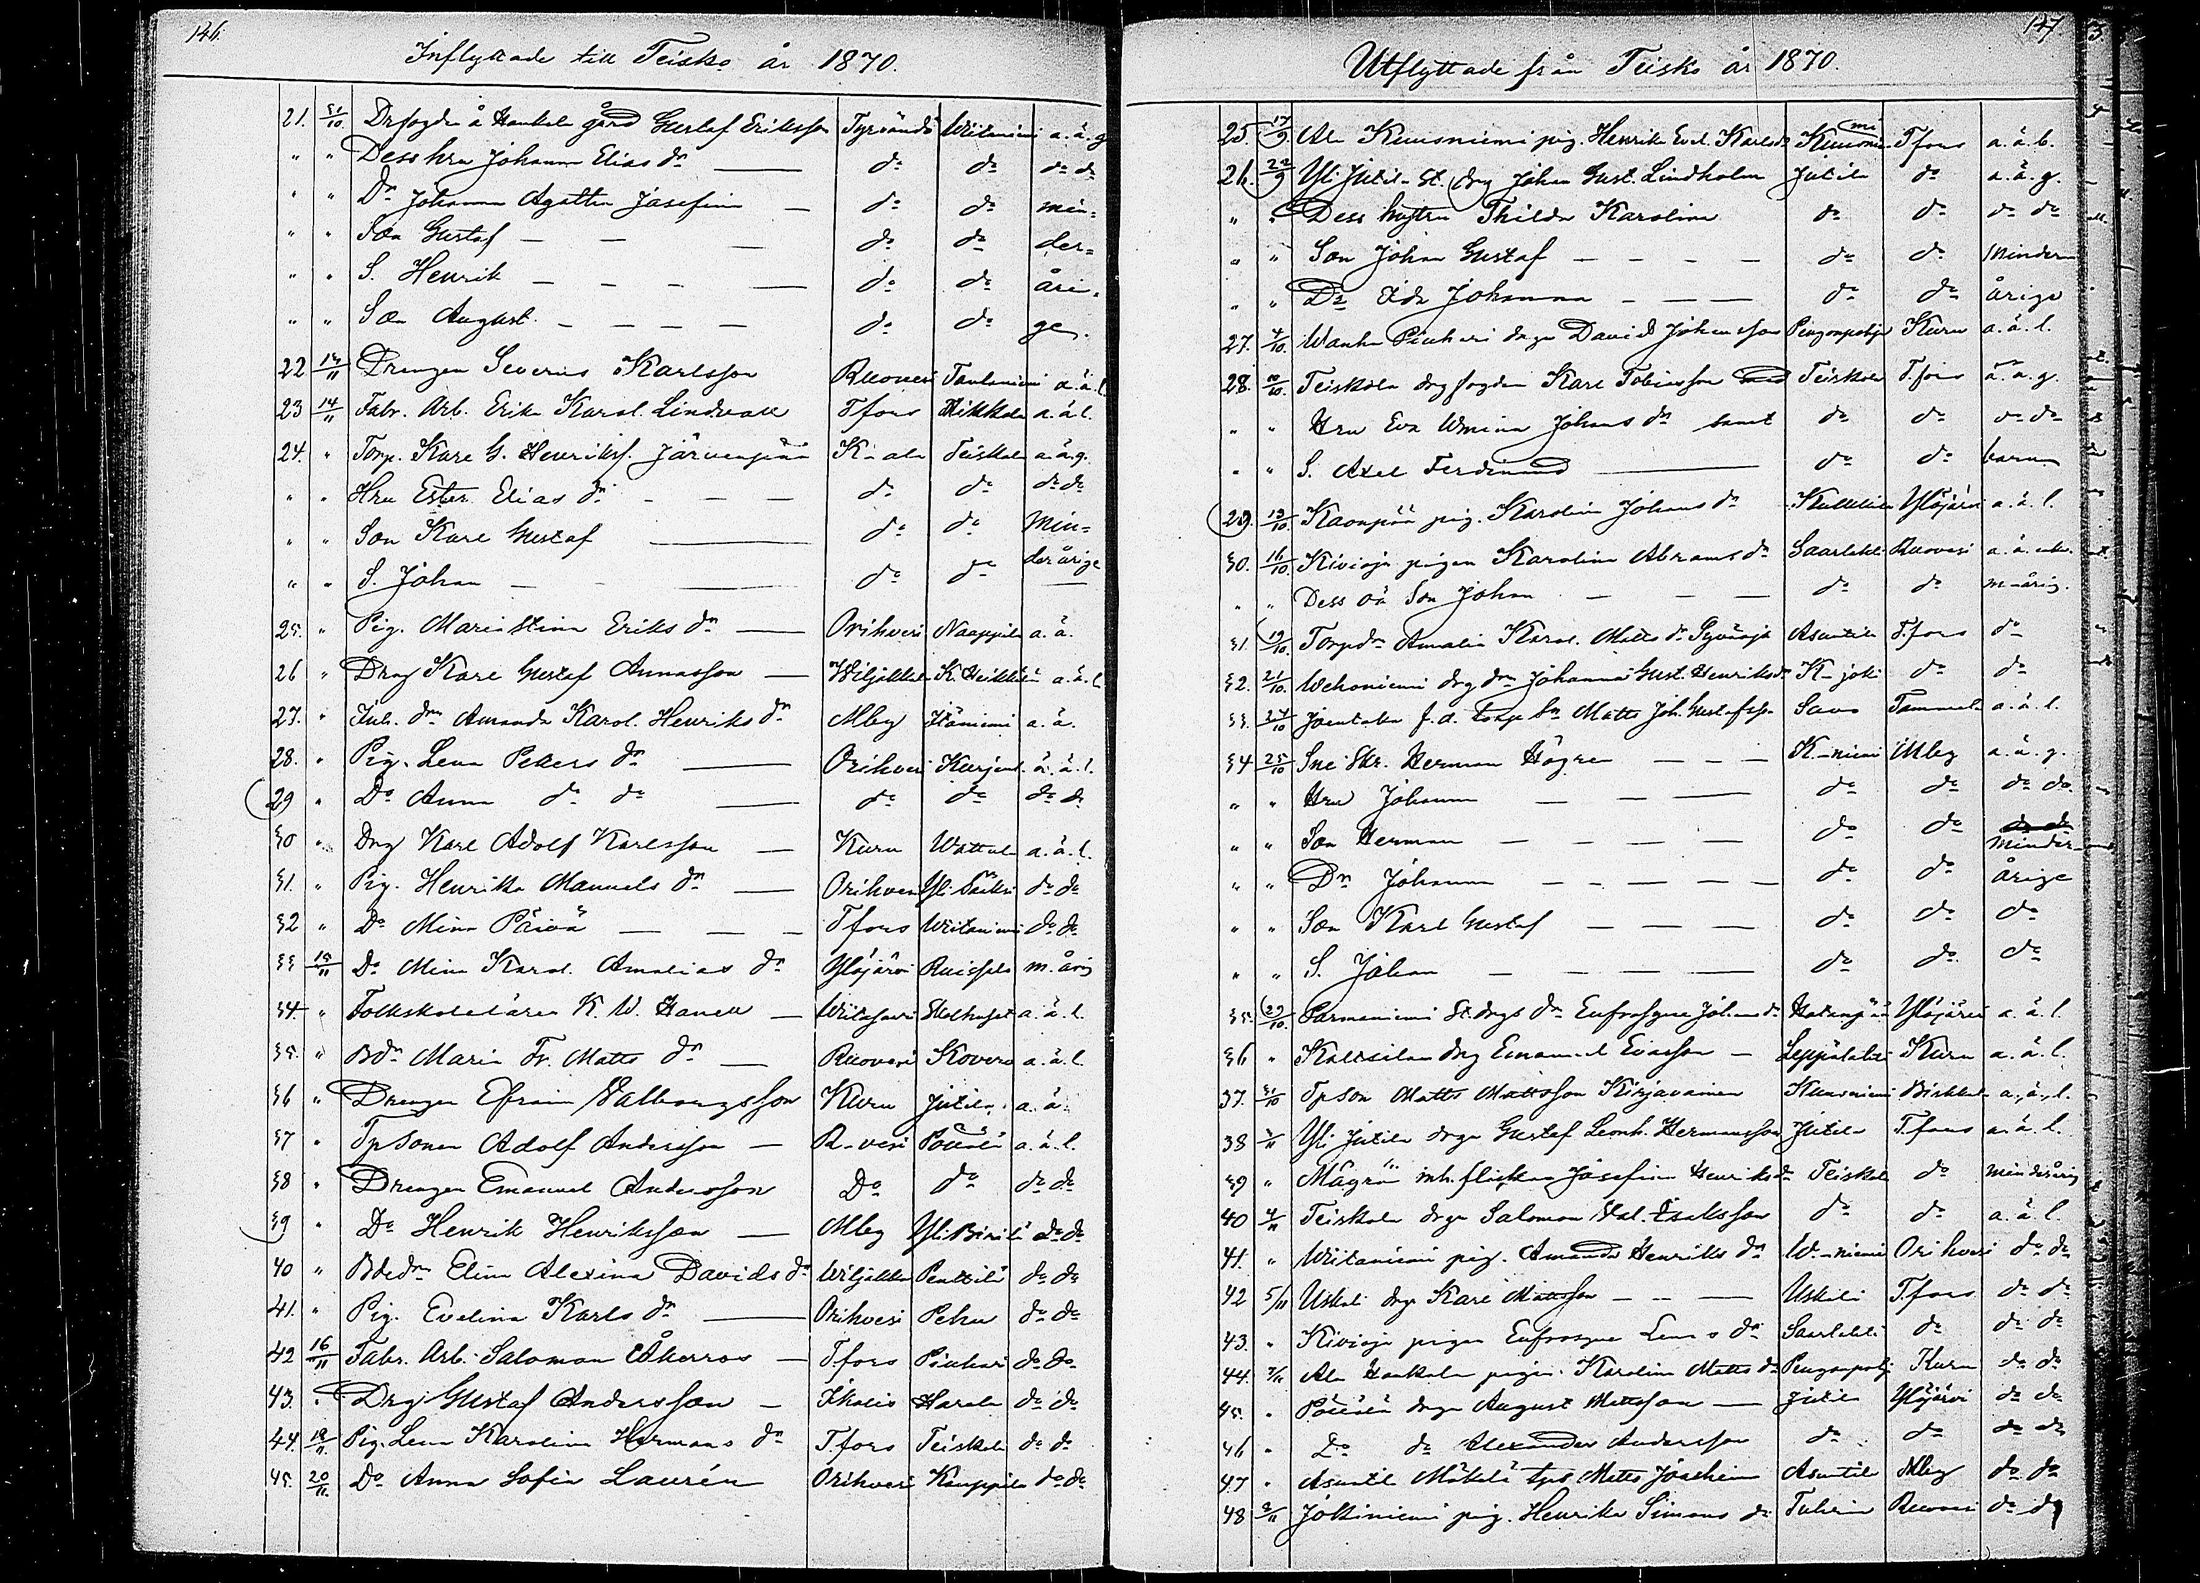 146.
Inflyttade till Teisko år 1870.
21. 31/10. Drfogden å Hankala gård Gustaf Eriksson Tyrvändö Wiitaniemi a. ä. g
" " Dess hru Johanna Elias dr do do do do
" " Dr Johanna Agatha Josefina do do min=
" " Son Gustaf do do der=
" " S. Henrik do do åri=
" " Son August do do ge.
22 14/11 Drengen Severus Karlsson Ruovesi Taulaniemi a. ä. l
23 14/11 Fabr. Arb. Erik Karol. Lindvall Tfors Hikkola a. ä. l.
24. " Torp. Karl G. Henriksf. Järvenpää K-ala Teiskola a. ä. g.
" " Hru Ester Elias dr do do do do
" " Son Karl Gustaf do do Min=
" " S. Johan do do derårige
25. " Pig. Maria Stina Eriks dr Orihvesi Naappila a. ä.
26 " Drng Karl Gustaf Annasson Wiljakkala K. Heikkilä a. ä. l
27. " Inh. drn Amanda Karol. Henriks dr Mby Itäniemi a. ä.
28. " Pig. Lena Peters dr Orihvesi Kurjent. a. ä. l.
29 " Do Anna do do do do do do
30 " Drng Karl Adolf Karlsson Kuru Wattula a. ä. l.
31. " Pig. Henrika Manuels dr Orihvesi Yli. do do
32 " Do Mina Päivä Tfors Wiitaniemi do do
33 15/11 Do Mina Karol. Amalias dr Ylöjärvi m. årig
34. " Folkskolelären K. W. Wiitasaari Skolhuset a. ä. l.
35. " Bdr Maria Fr. Matts dr Ruovesi Kovero a. ä. l
36 " Drengen Efraim Valborgsson Kuru Jutila a. ä.
37 " Tp Sonen Adolf Andersson R-vesi a. ä. l.
38 " Drengen Emanuel Andersson Do do do do
39 " Do Henrik Henriksson Mby Yli. do do
40 " Bdedrn Elina Alexina Davids dr Wiljakkala Penttilä do do
41. " Pig. Evelina Karls dr Orihvesi Pehu do do
42 16/11 Fabr. Arb. Salomon Åkerros Tfors Piukari do do
43. " Drg Gustaf Andersson Ikalis Harala do do
44. 18/11. Pig. Lena Karolina Hermans dr Tfors Teiskola do do
45. 20/11. Do Anna Sofia Laurén Orihvesi Kauppila do do
147.
Utflyttade från Teisko år 1870.
25. 17/9 Ala Kuusniemi pig. Henrika Evel. Karls dr Kuusnie mi Tfors a. ä. b.
26. 22/9 Yli Jutila St. drg Johan Gust. Lindholm Jutila do a. ä. g.
" " Dess hustru Thilda Karolina do do do do
" " Son Johan Gustaf do do Minder
" " Dr Ida Johanna do do årige
27. 4/10. Wanha Piukari drgn David Johansson Pengonpohja Kuru a. ä. l.
28. 10/10. Teiskola drgfogden Karl Tobiasson Teiskola Tfors a. ä. g.
" " Hru Eva Wmina Johans dr samt do do do do
" " S. Axel Ferdinand do do barn
29. 12/10 Kaonpää pig. Karolina Johans dr Kulkkila Ylöjärvi a. ä. l.
30. 16/10. Kivioja pigan Karolina Abrams dr Saarlahti Ruovesi a. ä.
" " Dess oä Son Johan do do m-årig.
31. 19/10. Torpdr Amalia Karol. Matts dr Asuntila Tfors do
32. 21/10. Wehoniemi drg drn Johanna Gust. Henriks dr K-joki do do
33. 24/10 Joentaka f. d. Matts Joh. Gustafss. Savo Tammel a. ä. l.
34 25/10 Sne Skr. Herman Högren K-niemi Mby a. ä. g.
" " Hru Johanna do do do do
" " Son Herman do do Minder
" " Dr Johanna do do årige
" " Son Karl Gustaf do do do
" " S. Johan do do do
35. 29/10. Parmaniemi St. drgs dr Eufrosyne Johans dr Hatanpää Ylöjärvi a. ä. l.
36 " Kaltsila drg Emanuel Evasson Leppälahti Kuru a. ä. l.
37. 31/10 Tpson Matts Mattsson Kirjavainen Kuusniemi Birkkala a. ä. l.
38 Yli Jutila drgn Gustaf Leonh. Hermansson Jutila Tfors a. ä. l.
39 " Mägrä inh. flickan Josefina Henriks dr Teiskola do minderårig
40 4/11 Teiskola drgn Salomon Val. Isaksson do do a. ä. l.
41. " Wiitaniemi pig. Amanda Henriks dr W-niemi Orihvesi do do
42 5/11 Uskali drgn Karl Mattsson Uskali Tfors do do
43. " Kivioja pigan Eufrosyne Lena s dr Saarlahti do do do
44. 7/11 Ala Hankala pigan Karolina Matts dr Pengonpohj Kuru do do
45. " drgn August Mattsson Jutila Ylöjärvi do do
46 " Do do Alexander Andersson do do do do
47. " Asuntila Mäkelä tps Matts Joachim Asuntila Mby do do
48 Jokiniemi pig. Henrika Simons dr Ruovesi do do